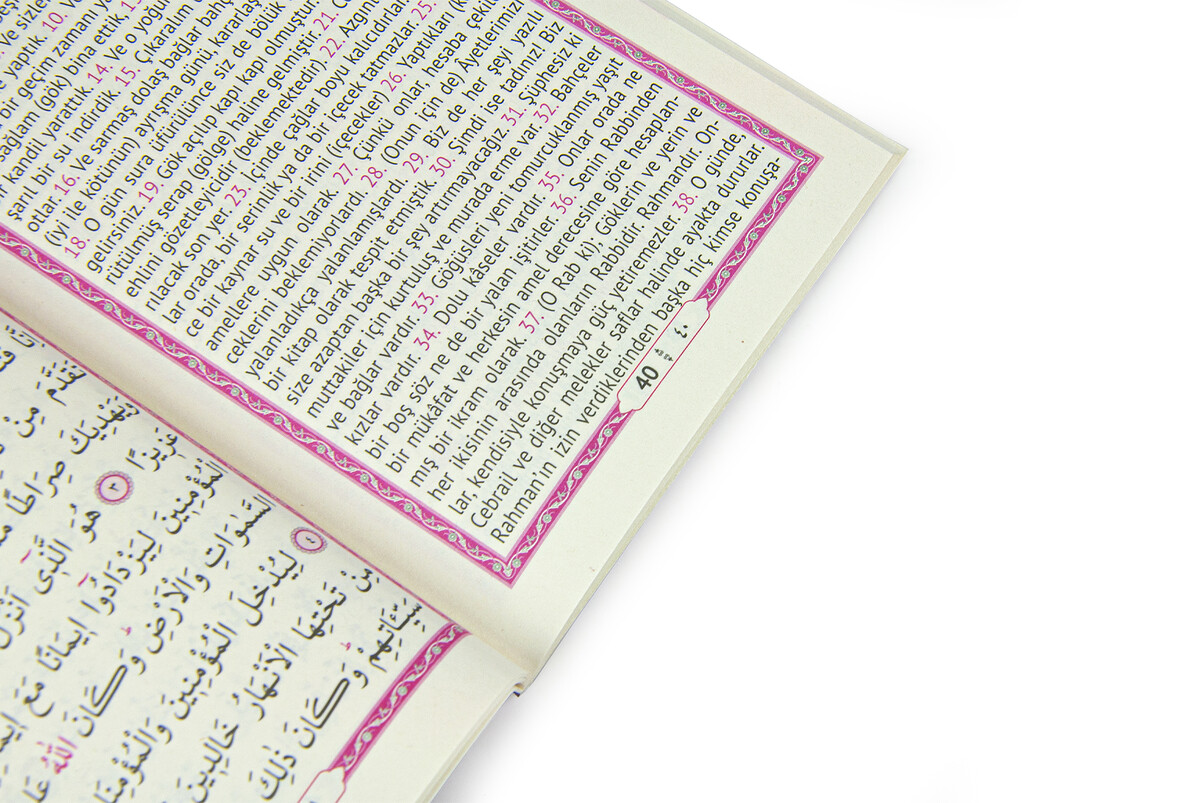 ve sizler
yaptık. 10. Ve
bir geçim zaman
sağlam (gök) bina ettik.
kandil yarattık. 14. Ve o
şarıl bir su indirdik. 15. Çıkaralım
otlar. 16. Ve sarmaş dolaş bağlar
(iyi ile kötünün) ayrışma günü,
18. O gün sura üfürülünce siz de bölük
gelirsiniz. 19. Gök açılıp kapı kapı olmuştur.
rütülmüş serap (gölge) haline gelmiştir. 21.
ehlini gözetleyicidir (beklemektedir) 22.
rılacak son yer. 23. İçinde çağlar boyu kalıcıdırlar
lar orada, bir serinlik ya da bir içecek tatmazlar. 25.
ce bir kaynar su ve bir irini (içecekler) 26. Yaptıkları
amellere uygun olarak. 27. Çünkü onlar hesaba çekil
ceklerini beklemiyorlardı. 28. (Onun için de) Âyetlerimizi
yalanladıkça yalanlamışlardı. 29. Biz de her şeyi yazılı
bir kitap olarak tespit etmiştik. 30. Şimdi ise tadınız! Biz
size azaptan başka bir şey artırmayacağız. 31. Şüphesiz ki
muttakiler için kurtuluş ve murada erme var. 32. Bahçeler
ve bağlar vardır. 33. Göğüsleri yeni tomurcuklanmış yaşıt
kızlar vardır. 34. Dolu kâseler vardır. 35. Onlar orada ne
bir boş söz ne de bir yalan işitirler. 36. Senin Rabbinden
bir mükâfat ve herkesin amel derecesine göre hesaplan-
mış bir ikram olarak. 37. (O Rab ki), Göklerin ve yerin ve
her ikisinin arasında olanların Rabbidir. Rahmandır. On-
lar, kendisiyle konuşmaya güç yetiremezler. 38. O günde,
Cebrail ve diğer melekler saflar halinde ayakta dururlar
Rahman'ın izin verdiklerinden başka hiç kimse konuşa-
40 ٤٠
تَقَدَّمَ مِنْ
وَيَهْدِيَكَ صِرَاطًا
عَزِيزًا ٣ هُوَ الَّذِٓى اَنْزَلَ
الْمُؤْمِنِينَ لِيَزْدَادُٓوا اِيمَانًا مَعَ
السَّمٰوَاتِ وَالْاَرْضِ وَكَانَ اللّٰهُ
٤ لِيُدْخِلَ الْمُؤْمِنِينَ وَالْمُؤْمِنَاتِ
مِنْ تَحْتِهَا الْاَنْهَارُ خَالِدِينَ
سَيِّـَٔاتِهِمْ وَكَانَ ذٰلِكَ